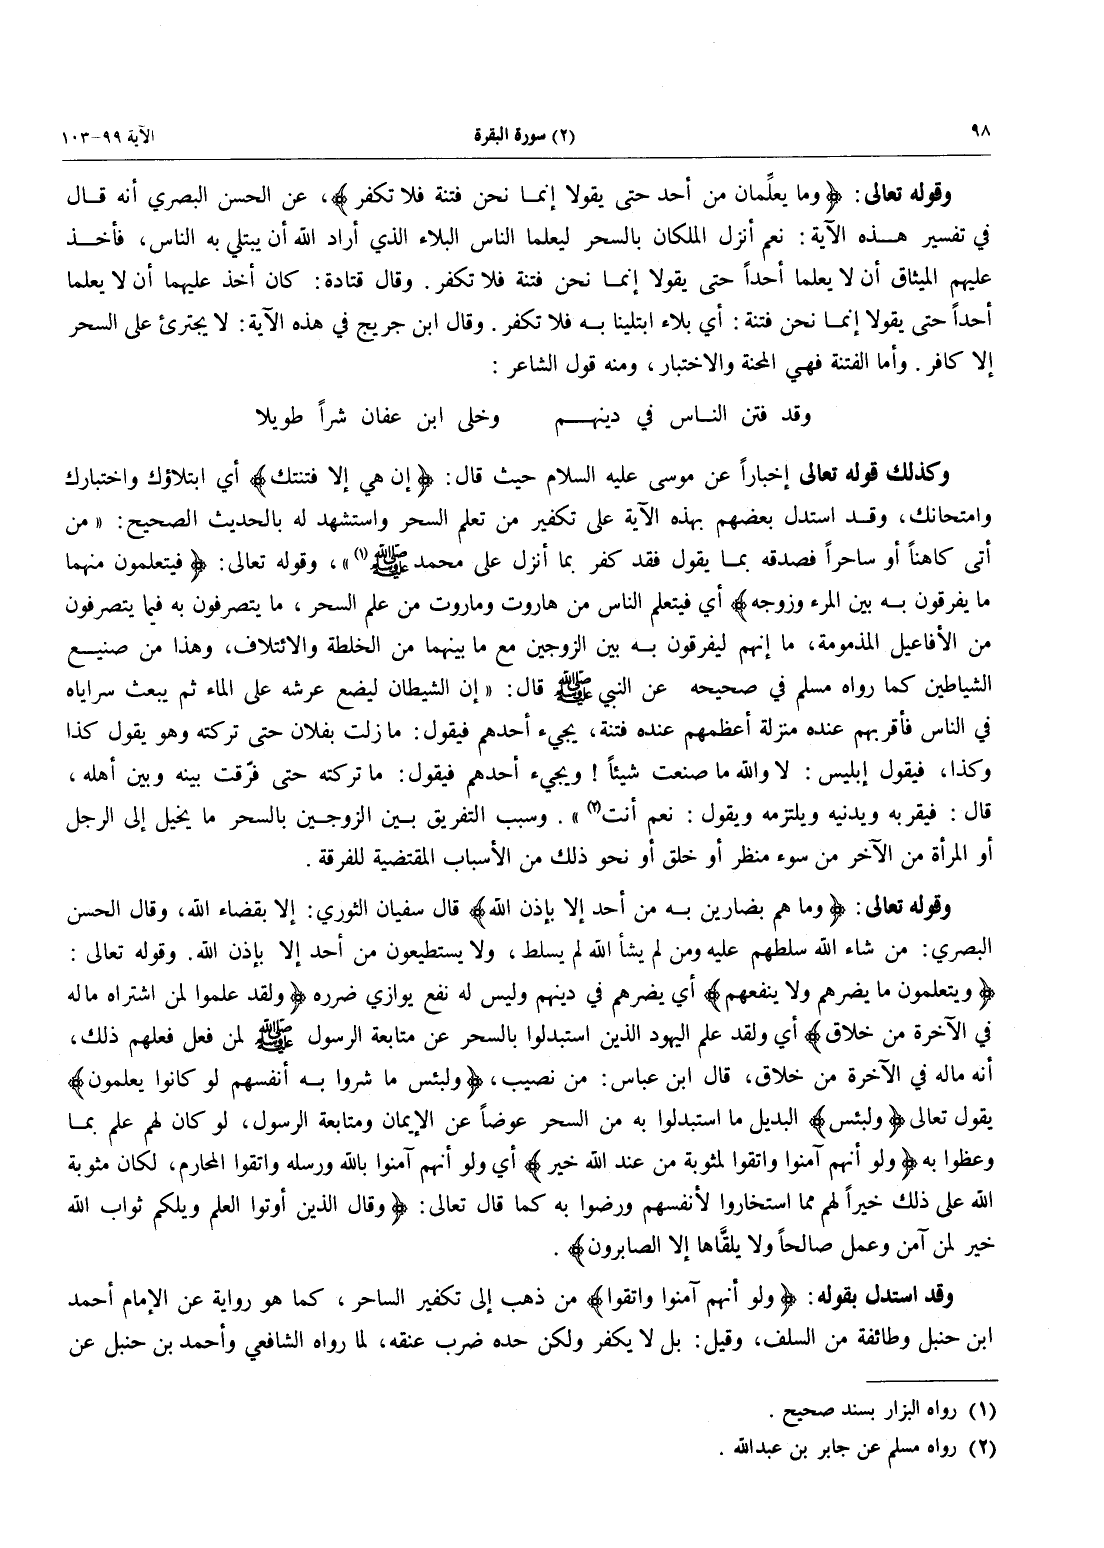 ٩٨ (٢) سورة البقرة الآية ٩٩-١٠٣
وقوله تعالى: ﴿وما يعلِّمان من أحد حتى يقولا إنما نحن فتنة فلا تكفر﴾، عن الحسن البصري أنه قال
في تفسير هذه الآية: نعم أنزل الملكان بالسحر ليعلما الناس البلاء الذي أراد الله أن يبتلي به الناس، فأخذ
عليهم الميثاق أن لا يعلما أحداً حتى يقولا إنما نحن فتنة فلا تكفر. وقال قتادة: كان أخذ عليهما أن لا يعلما
أحداً حتى يقولا إنما نحن فتنة: أي بلاء ابتلينا به فلا تكفر. وقال ابن جريج في هذه الآية: لا يجترئ على السحر
إلا كافر. وأما الفتنة فهي المحنة والاختبار، ومنه قول الشاعر:
وقد فتن الناس في دينهم وخلى ابن عفان شراً طويلا
وكذلك قوله تعالى إخباراً عن موسى عليه السلام حيث قال: ﴿إن هي إلا فتنتك﴾ أي ابتلاؤك واختبارك
وامتحانك، وقد استدل بعضهم بهذه الآية على تكفير من تعلم السحر واستشهد له بالحديث الصحيح: «من
أتى كاهناً أو ساحراً فصدقه بما يقول فقد كفر بما أنزل على محمد ﷺ(١)»، وقوله تعالى: ﴿فيتعلمون منهما
ما يفرقون به بين المرء وزوجه﴾ أي فيتعلم الناس من هاروت وماروت من علم السحر، ما يتصرفون به فيما يتصرفون
من الأفاعيل المذمومة، ما إنهم ليفرقون به بين الزوجين مع ما بينهما من الخلطة والائتلاف، وهذا من صنيع
الشياطين كما رواه مسلم في صحيحه عن النبي ﷺ قال: «إن الشيطان ليضع عرشه على الماء ثم يبعث سراياه
في الناس فأقربهم عنده منزلة أعظمهم عنده فتنة، يجيء أحدهم فيقول: ما زلت بفلان حتى تركته وهو يقول كذا
وكذا، فيقول إبليس: لا والله ما صنعت شيئاً! ويجيء أحدهم فيقول: ما تركته حتى فرّقت بينه وبين أهله،
قال: فيقربه ويدنيه ويلتزمه ويقول: نعم أنت(٢)». وسبب التفريق بين الزوجين بالسحر ما يخيل إلى الرجل
أو المرأة من الآخر من سوء منظر أو خلق أو نحو ذلك من الأسباب المقتضية للفرقة.
وقوله تعالى: ﴿وما هم بضارين به من أحد إلا بإذن الله﴾ قال سفيان الثوري: إلا بقضاء الله، وقال الحسن
البصري: من شاء الله سلطهم عليه ومن لم يشأ الله لم يسلط، ولا يستطيعون من أحد إلا بإذن الله. وقوله تعالى:
﴿ويتعلمون ما يضرهم ولا ينفعهم﴾ أي يضرهم في دينهم وليس له نفع يوازي ضرره ﴿ولقد علموا لمن اشتراه ماله
في الآخرة من خلاق﴾ أي ولقد علم اليهود الذين استبدلوا بالسحر عن متابعة الرسول ﷺ لمن فعل فعلهم ذلك،
أنه ماله في الآخرة من خلاق، قال ابن عباس: من نصيب، ﴿ولبئس ما شروا به أنفسهم لو كانوا يعلمون﴾
يقول تعالى ﴿ولبئس﴾ البديل ما استبدلوا به من السحر عوضاً عن الإيمان ومتابعة الرسول، لو كان لهم علم بما
وعظوا به ﴿ولو أنهم آمنوا واتقوا لمثوبة من عند الله خير﴾ أي ولو أنهم آمنوا بالله ورسله واتقوا المحارم، لكان مثوبة
الله على ذلك خيراً لهم مما استخاروا لأنفسهم ورضوا به كما قال تعالى: ﴿وقال الذين أوتوا العلم ويلكم ثواب الله
خير لمن آمن وعمل صالحاً ولا يلقَّاها إلا الصابرون﴾.
وقد استدل بقوله: ﴿ولو أنهم آمنوا واتقوا﴾ من ذهب إلى تكفير الساحر، كما هو رواية عن الإمام أحمد
ابن حنبل وطائفة من السلف، وقيل: بل لا يكفر ولكن حده ضرب عنقه، لما رواه الشافعي وأحمد بن حنبل عن
(١) رواه البزار بسند صحيح.
(٢) رواه مسلم عن جابر بن عبدالله.